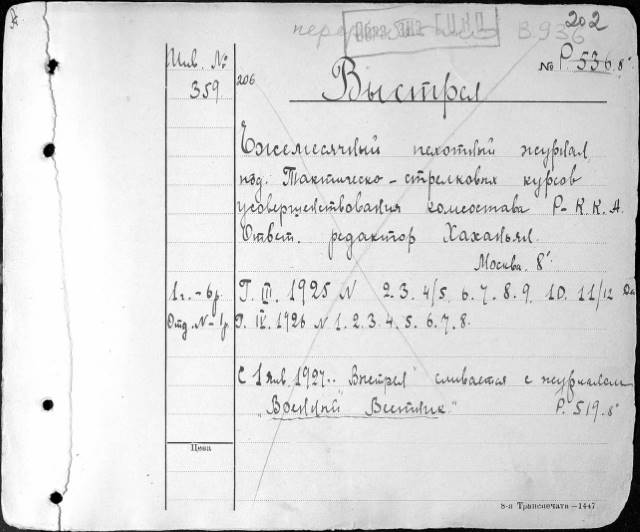 202
В.936
Инв. №
359
206
№ Р. 536. 8°
Выстрел
Ежемесячный пехотный журнал,
изд. Тактическо-стрелковых курсов
усовершенствования комсостава Р-К.К.А.
Ответ. редактор Хаханьян.
Москва. 8°.
1г. - 6р. Г. III. 1925 № 2. 3. 4/5. 6. 7. 8. 9. 10. 11/12
Отд. № - 1р. Г. IV. 1926 № 1. 2. 3. 4. 5. 6. 7. 8.
С 1 янв. 1927.. Выстрел" сливается с журналом
„Военный Вестник." Р. 519. 8°
Цена
8-я Транспечати —1447